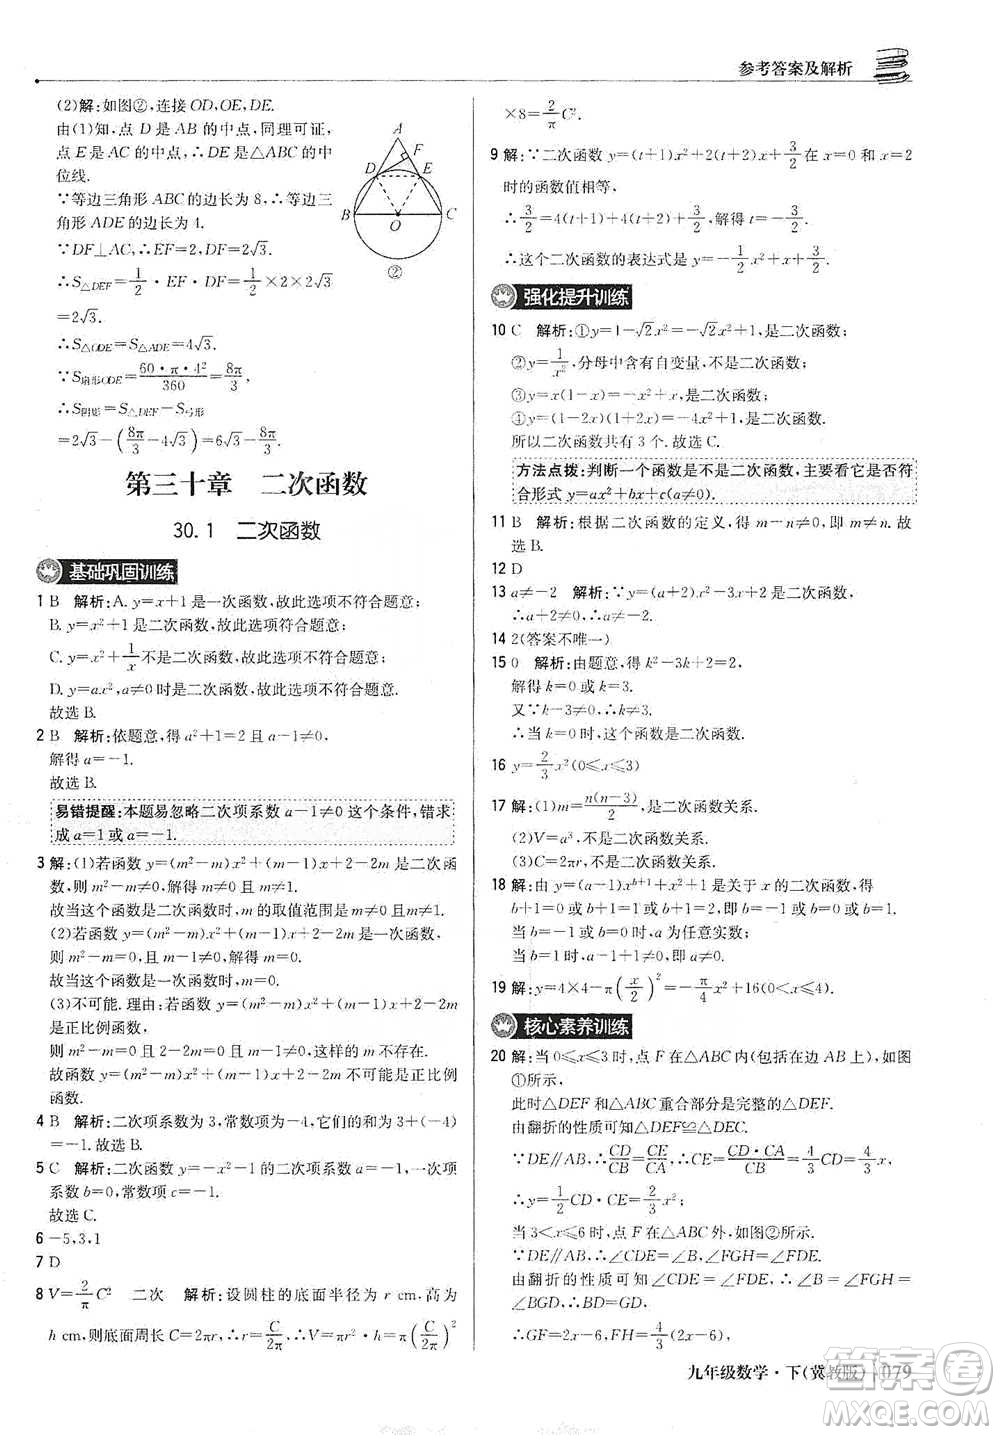 参考答案及解析
(2)解:如图②,连接 OD,OE,DE.
由(1)知,点 D 是 AB 的中点,同理可证,
点 E 是 AC 的中点,∴DE 是△ABC 的中
位线.
∵等边三角形 ABC 的边长为 8,∴等边三
角形 ADE 的边长为 4.
∵DF⊥AC,∴EF=2,DF=2√3.
∴S△DEF=1/2·EF·DF=1/2×2×2√3
=2√3.
∴S△ODE=S△ADE=4√3.
∵S扇形ODE=60·π·4²/360=8π/3,
∴S阴影=S△DEF−S弓形
=2√3−(8π/3−4√3)=6√3−8π/3.
A
F
D
E
B
O
C
②
第三十章 二次函数
30.1 二次函数
基础巩固训练
1 B 解析:A. y=x+1是一次函数,故此选项不符合题意;
B. y=x²+1是二次函数,故此选项符合题意;
C. y=x²+1/x不是二次函数,故此选项不符合题意;
D. y=ax²,a≠0时是二次函数,故此选项不符合题意.
故选 B.
2 B 解析:依题意,得 a²+1=2 且 a−1≠0,
解得 a=−1.
故选 B.
易错提醒:本题易忽略二次项系数 a−1≠0 这个条件,错求
成 a=1 或 a=−1.
3 解:(1)若函数 y=(m²−m)x²+(m−1)x+2−2m 是二次函
数,则 m²−m≠0,解得 m≠0 且 m≠1.
故当这个函数是二次函数时,m 的取值范围是 m≠0 且 m≠1.
(2)若函数 y=(m²−m)x²+(m−1)x+2−2m 是一次函数,
则 m²−m=0,m−1≠0,解得 m=0.
故当这个函数是一次函数时,m=0.
(3)不可能. 理由:若函数 y=(m²−m)x²+(m−1)x+2−2m
是正比例函数,
则 m²−m=0,m−1≠0,2−2m=0,此时 m 不存在.
故函数 y=(m²−m)x²+(m−1)x+2−2m 不可能是正比例
函数.
4 B 解析:二次项系数为 3,常数项为−4,它们的和为 3+(−4)
=−1. 故选 B.
5 C 解析:二次函数 y=x²+4x−1 的二次项系数 a=1,一次项
系数 b=4,常数项 c=−1.
故选 C.
6 −5,3,1
7 D
8 V=2/π C² 二次 解析:设圆柱的底面半径为 r cm,高为
h cm,则底面周长 C=2πr,∴r=C/2π,∴V=πr²·h=π(C/2π)²
×8=2/π C².
9 解:∵二次函数 y=(t+1)x²+2(t+2)x+3/2在 x=0 和 x=2
时的函数值相等,
∴3/2=4(t+1)+4(t+2)+3/2,解得 t=−3/2.
∴这个二次函数的表达式是 y=−1/2x²+x+3/2.
强化提升训练
10 C 解析:①y=1−√2x²=−√2x²+1,是二次函数;
②y=1/x²,分母中含有自变量,不是二次函数;
③y=x(1−x)=−x²+x,是二次函数;
④y=(1−2x)(1+2x)=−4x²+1,是二次函数.
所以二次函数共有 3 个. 故选 C.
方法点拨:判断一个函数是不是二次函数,主要看它是否符
合形式 y=ax²+bx+c(a≠0).
11 B 解析:根据二次函数的定义,得 m−n≠0,即 m≠n. 故
选 B.
12 D
13 a≠−2 解析:∵y=(a+2)x²−3x+2 是二次函数,
∴a+2≠0,∴a≠−2.
14 2(答案不唯一)
15 0 解析:由题意,得 k²−3k+2=2,
解得 k=0 或 k=3.
又∵k−3≠0,∴k≠3.
∴当 k=0 时,这个函数是二次函数.
16 y=2/3x²(0≤x≤3)
17 解:(1)m=n(n−3)/2,是二次函数关系.
(2)V=a³,不是二次函数关系.
(3)C=2πr,不是二次函数关系.
18 解:由 y=(a−1)x^(b+1)+x²+1 是关于 x 的二次函数,得
b+1=0 或 b+1=1 或 b+1=2,即 b=−1 或 b=0 或 b=1.
当 b=−1 或 b=0 时,a 为任意实数;
当 b=1 时,a≠0.
19 解:y=4×4−π(x/2)²=−π/4x²+16(0<x≤4).
核心素养训练
20 解:当 0≤x≤3 时,点 F 在△ABC 内(包括在边 AB 上),如图
①所示,
此时△DEF 和△ABC 重合部分是完整的△DEF.
由翻折的性质可知△DEF≌△DEC.
∵DE∥AB,∴CD/CB=CE/CA,∴CE=CD·CA/CB=4/3CD=4/3x,
∴y=1/2CD·CE=2/3x².
当 3<x≤6 时,点 F 在△ABC 外,如图②所示.
∵DE∥AB,∴∠CDE=∠B,∠FGH=∠FDE.
由翻折的性质可知∠CDE=∠FDE,∴∠B=∠FGH=
∠BGD,∴BD=DG,
∴GF=2x−6,FH=4/3(2x−6).
九年级数学·下(冀教版) 079
答案圈
MXQE.COM